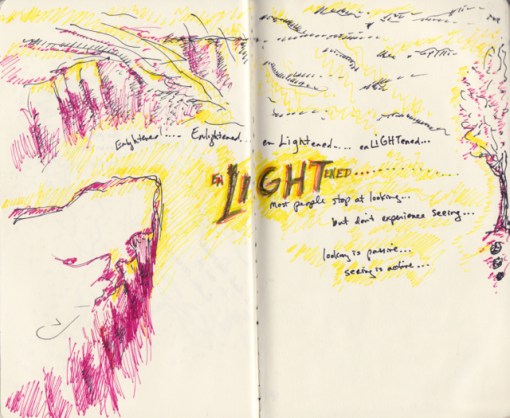 Enlightened.... Enlightened... en Lightened.... enLIGHTened...
ENLIGHTENED..............
most people stop at looking...
but don't experience seeing...
looking is passive...
seeing is active...